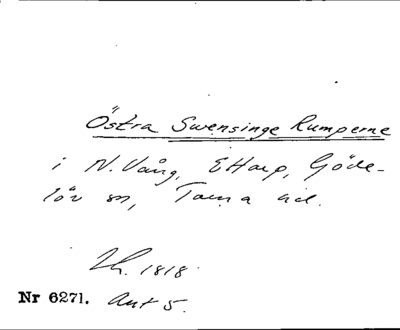 Östra Swensinge Rumperne
i N. Vång, Ettarp, Göde-
löv sn, Torna hd.
Lh. 1818
Nr 6271. Akt 5.